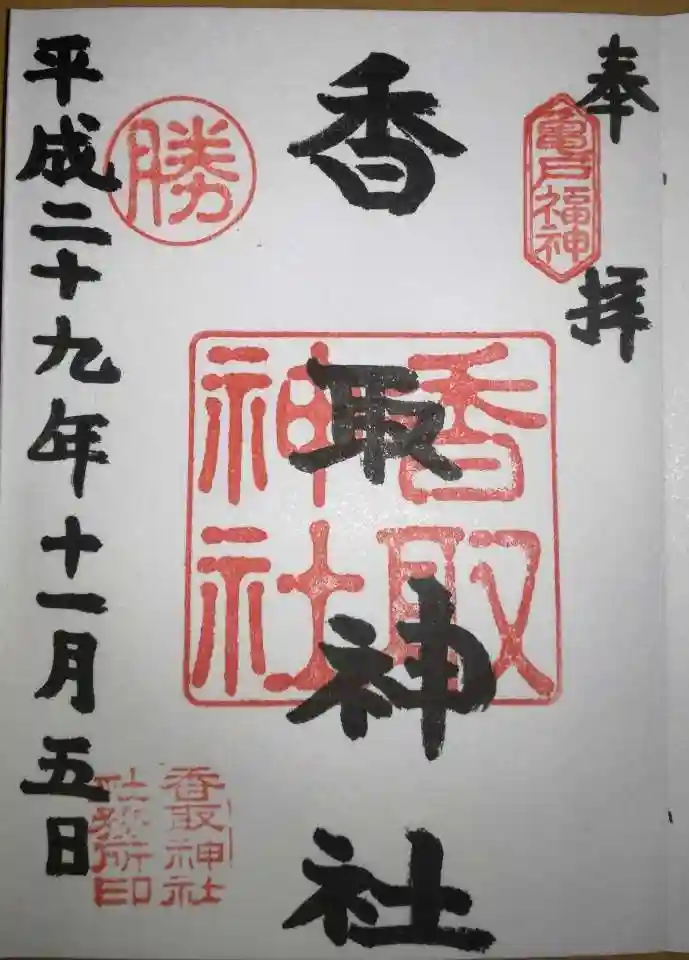 奉拝
亀戸福神
香取神社
香取神社
勝
平成二十九年十一月五日
香取神社
社務所印